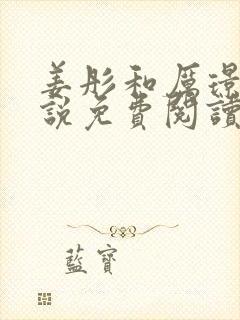 姜彤和厲璟
說免費閱讀
藍寶